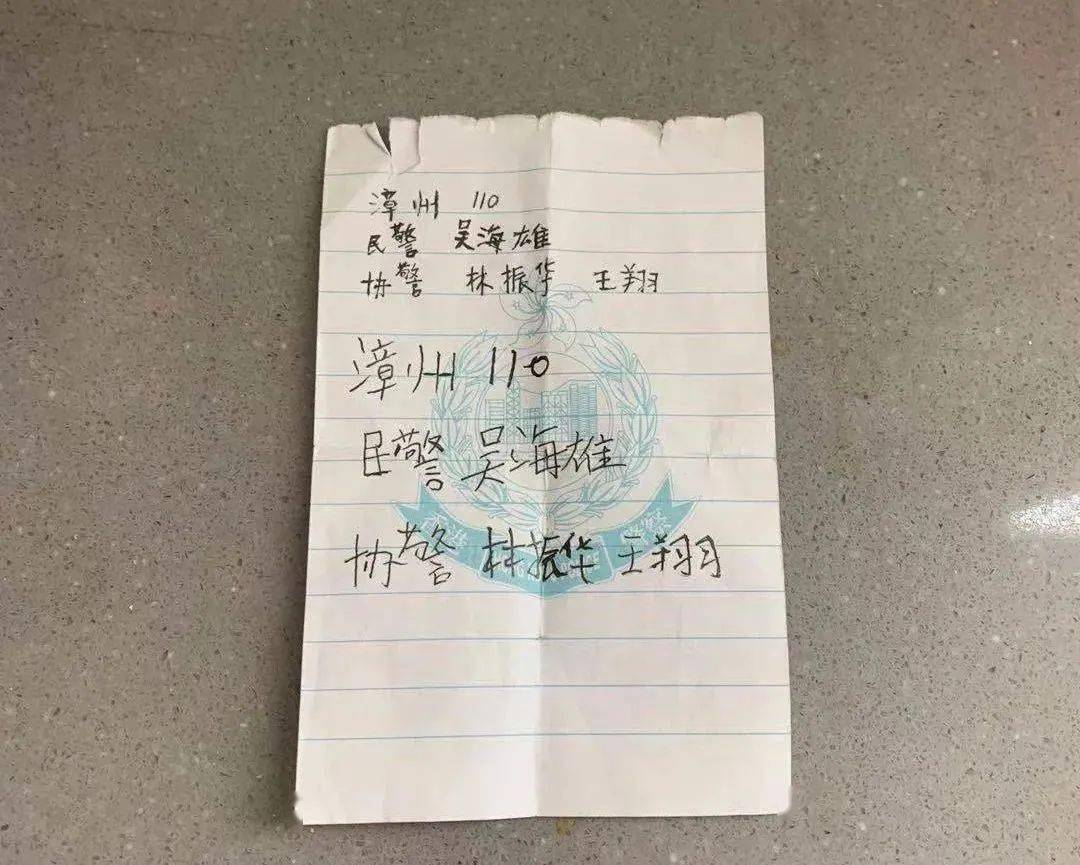 漳州 110
民警 吴海雄
协警 林振华 王翔
漳州 110
民警 吴海雄
协警 林振华 王翔
香港 警察